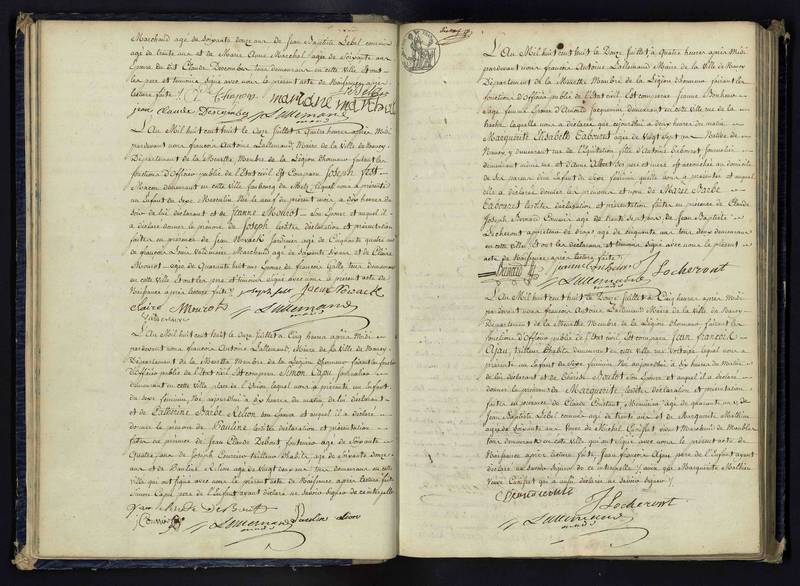 Marchand agé de Soixante douze ans de Jean Baptiste Lebel commis
agé de trente ans et de Marie Anne Marchal agée de Soixante ans
Epouse de dit Claude Decembre tous demeurant en cette Ville et ont
les pere et temoins Signé avec nous le present acte de Naissance après
lecture faite
mariane marchal
jean Claude Decembre Lallemand
L'An Mil huit cent huit le Onze Juillet à Quatre heures après Midi
pardevant nous françois Antoine Lallemand, Maire de la Ville de Nancy
Département de la Meurthe, Membre de la Légion d'honneur faisant les
fonctions d'Officier public de l'Etat civil Est Comparu Joseph fast
Macon demeurant en cette Ville faubourg de Metz, lequel nous a présenté
un Enfant de Sexe Masculin Né le neuf du present mois à dix heures du
Soir de lui déclarant et de Jeanne Mourot Son Epouse et auquel il
a déclaré donner le prénom de Joseph lesdites déclaration et présentation
faites en présence de Jean Novack Jardinier agé de Cinquante quatre ans
de françois Louis Valdenaire Marchand agé de Soixante deux ans et de Claire
Mourot agée de Quarante huit ans Epouse de françois Galle tous demeurant
en cette Ville et ont les pere et temoins Signé avec nous le present acte de
Naissance après lecture faite joseph fast Jean Novack
Claire Mourot Lallemand
Valdenaire
L'An Mil huit cent huit le Onze Juillet à Cinq heures après Midi
pardevant nous françois Antoine Lallemand, Maire de la Ville de Nancy
Département de la Meurthe Membre de la Légion d'honneur faisant les fonctions
d'Officier public de l'Etat civil Est comparu Simon Capu Journalier
demeurant en cette Ville place de l'Union lequel nous a présenté un Enfant
de Sexe féminin Née aujourd'hui à dix heures du matin de lui déclarant
et de Catherine Barbe Relion Son Epouse et auquel il a déclaré
donner le prénom de Pauline lesdites déclaration et présentation
faites en présence de Jean Claude Debout fruitier agé de Soixante
Quatre ans de Joseph Courrier tailleur d'habits, agé de Soixante douze
ans et de Pauline Relion agée de Vingt deux ans tous demeurant en cette
Ville qui ont signé avec nous le present acte de Naissance après lecture faite
Simon Capu pere de l'Enfant ayant déclaré ne Savoir Signer de ce interpellé
Jean Claude Debout
Courrier Lallemand Pauline
L'An Mil huit cent huit le Douze Juillet à Quatre heures après Midi
pardevant nous françois Antoine Lallemand Maire de la Ville de Nancy
Département de la Meurthe Membre de la Légion d'honneur faisant les
fonctions d'Officier public de l'Etat civil Est comparue Jeanne Bonheur
Sage femme Epouse d'Antoine demeurant en cette Ville rue de la
laquelle nous a déclaré que cejourd'hui à deux heures du matin
Marguerite Elisabeth Cabouret agée de Vingt Sept ans Native de
Nancy y demeurant rue de l'Equitation fille d'Antoine Cabouret
demeurant même rue et d'Anne Ses pere et mere est accouchée au domicile
de Ses parens d'un Enfant de Sexe féminin qu'elle nous a présenté et auquel
elle a déclaré donner les prénoms et nom de Marie Barbe
Cabouret lesdites déclaration et présentation faites en présence de Claude
Joseph Bernard Courier agé de trente Sept ans, de Jean Baptiste
Locheront apprêteur de draps agé de cinquante un ans tous deux demeurant
en cette Ville, Et ont les déclarante et temoins Signé avec nous le present
acte de Naissance après lecture faite
jeanne bonheur J Locheront
Lallemand
L'An Mil huit cent huit le Douze Juillet à Cinq heures après Midi
pardevant nous françois Antoine Lallemand, Maire de la Ville de Nancy
Département de la Meurthe Membre de la Légion d'honneur faisant les
fonctions d'Officier public de l'Etat civil Est comparu Jean françois
Ajau, tailleur d'habits demeurant en cette Ville rue lequel nous a
présenté un Enfant de Sexe féminin Née aujourd'hui à dix heures du Matin
de lui déclarant et de Son Epouse et auquel il a déclaré
donner le prénom de Marguerite lesdites déclaration et présentation
faites en présence de Claude Constant, Menuisier, agé de quarante un ans de
Jean Baptiste Lebel commis agé de trente ans et de Marguerite Mathieu
agée de Soixante ans Veuve de Michel Marchand de Meubles
tous demeurant en cette Ville qui ont Signé avec nous le present acte de
Naissance après lecture faite, Jean françois Ajau pere de l'Enfant ayant
déclaré ne Savoir Signer de ce interpellé, ainsi que Marguerite Mathieu
Veuve qui a aussi déclaré ne Savoir Signer
J Locheront
Lallemand